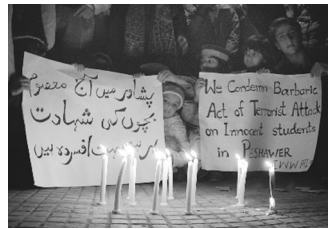 پشاور میں آج معصوم
بچوں کی شہادت
پر ہم بہت افسردہ ہیں
We Condemn Barbaric
Act of Terrorist Attack
on Innocent students
in PESHAWER